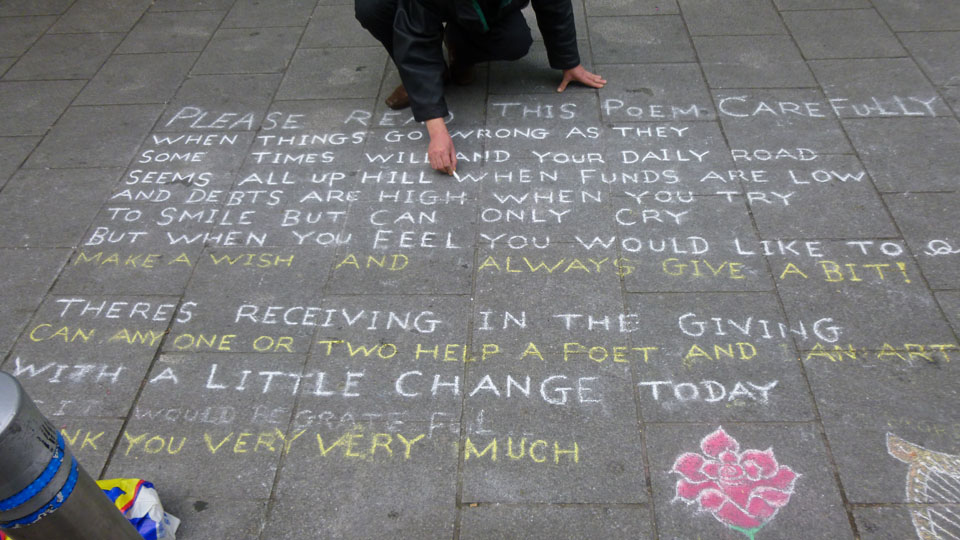 PLEASE READ THIS POEM CAREFULLY
WHEN THINGS GO WRONG AS THEY
SOME TIMES WILL AND YOUR DAILY ROAD
SEEMS ALL UP HILL WHEN FUNDS ARE LOW
AND DEBTS ARE HIGH WHEN YOU TRY
TO SMILE BUT CAN ONLY CRY
BUT WHEN YOU FEEL YOU WOULD LIKE TO
MAKE A WISH AND ALWAYS GIVE A BIT!
THERES RECEIVING IN THE GIVING
CAN ANY ONE OR TWO HELP A POET AND AN ART
WITH A LITTLE CHANGE TODAY
IT WOULD BE GRATE FUL
YOU VERY VERY MUCH